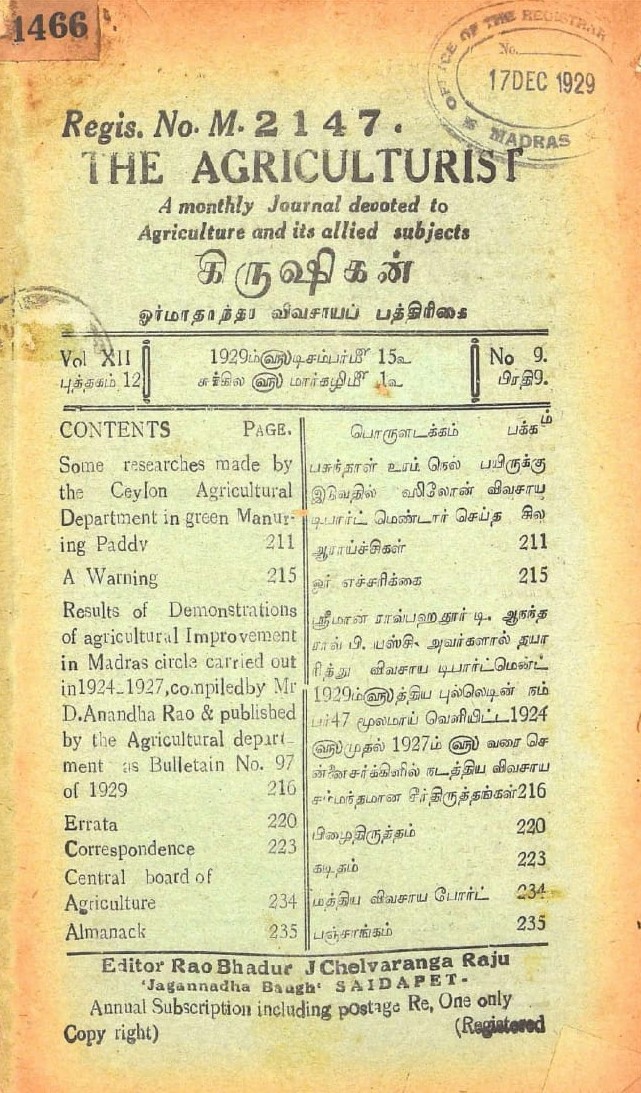 1466
OFFICE OF THE REGISTRAR
No.
17 DEC 1929
MADRAS
Regis. No. M. 2147.
THE AGRICULTURIST
A monthly Journal devoted to
Agriculture and its allied subjects
கிருஷிகன்
ஓர்மாதாந்தர விவசாயப் பத்திரிகை
Vol XII
புத்தகம் 12
1929ம்௵டிசம்பர்மீ 15௳
சுக்கில ௵ மார்கழிமீ 1௳
No 9.
பிரதி9.
CONTENTS PAGE.
Some researches made by
the Ceylon Agricultural
Department in green Manur-
ing Paddv 211
A Warning 215
Results of Demonstrations
of agricultural Improvement
in Madras circle carried out
in1924-1927,compiledby Mr
D.Anandha Rao & published
by the Agricultural depart-
ment as Bulletain No. 97
of 1929 216
Errata 220
Correspondence 223
Central board of
Agriculture 234
Almanack 235
பொருளடக்கம் பக்கம்
பசுந்தாள் உரம் நெல் பயிருக்கு
இடுவதில் ஸிலோன் விவசாய
டிபார்ட் மெண்டார் செய்த சில
ஆராய்ச்சிகள் 211
ஓர் எச்சரிக்கை 215
ஸ்ரீமான் ராவ்பஹதூர் டி. ஆநந்த
ராவ் பி. யஸ்சி. அவர்களால் தயா
ரித்து விவசாய டிபார்ட்மெண்ட்
1929ம்௵த்திய புல்லெடின் நம்
பர்47 மூலமாய் வெளியிட்ட1924
௵முதல் 1927ம் ௵ வரை செ
ன்னைசர்க்கிளில் நடத்திய விவசாய
சம்மந்தமான சீர்திருத்தங்கள்216
பிழைதிருத்தம் 220
கடிதம் 223
மத்திய விவசாய போர்ட் 234
பஞ்சாங்கம் 235
Editor Rao Bhadur J Chelvaranga Raju
'Jagannadha Baugh' SAIDAPET-
Annual Subscription including postage Re, One only
Copy right) (Registered